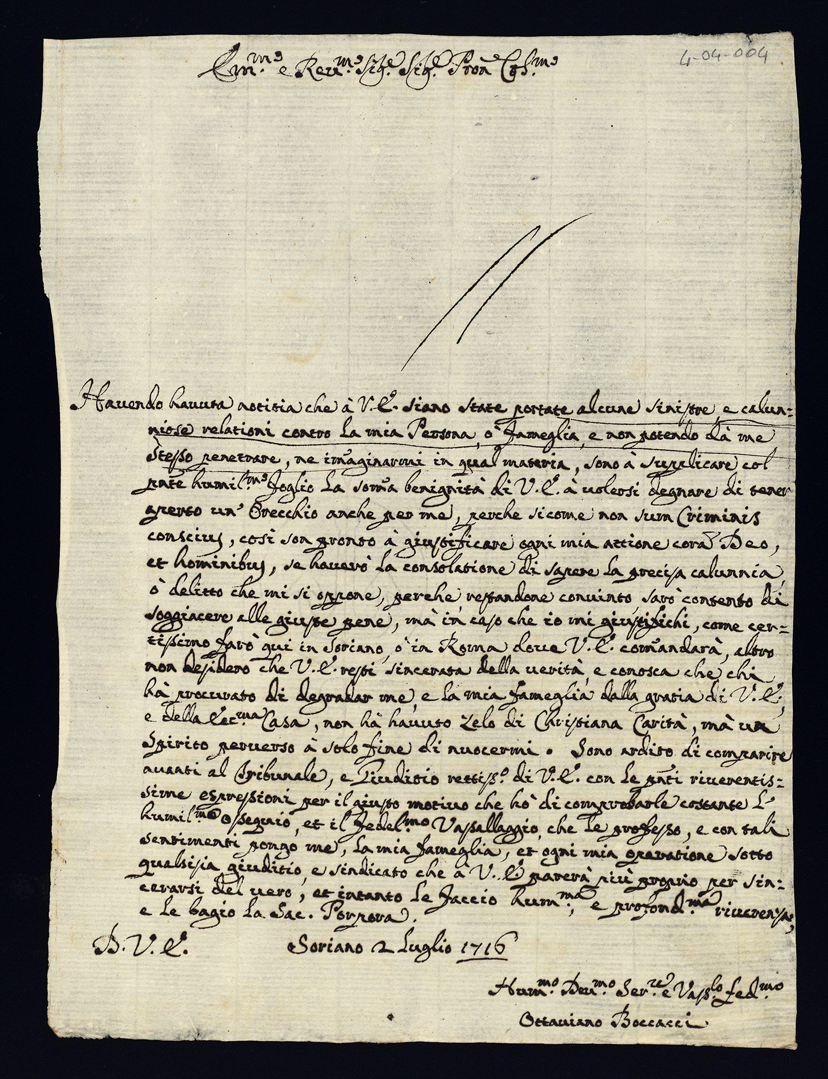 4-04-004
Em.mo e Rev.mo Sig.e Sig.e Pron Col.mo
Havendo havuta notitia che à V.E. siano state portate alcune sinistre, e calun=
niose relationi contro la mia Persona, o' fameglia, e non potendo dà me
stesso penetrare, ne imaginarmi in qual materia, sono à supplicare col
pnte humil.mo foglio la soma benignità di V.E. à volersi degnare di tener
aperto un' Orecchio anche per me, perche sicome non sum Criminis
conscius, così son pronto à giustificare ogni mia attione corã Deo,
et hominibus, se haverò la consolatione di sapere la precisa calunnia,
ò delitto che mi si oppone, perche restandone convinto sarò contento di
soggiacere alle giuste pene, mà in caso che io mi giustifichi, come cer=
tissimo farò qui in Soriano, o' in Roma dove V.E. comandarà, altro
non desidero che V.E. resti sincerata della verità, e conosca che chi
hà procurato di degradar me, e la mia fameglia dalla gratia di V.E.,
e della Ecc.ma Casa, non hà havuto zelo di Christiana Carità, mà un
Spirito perverso à solo fine di nuocermi. Sono ardito di comparire
avanti al Tribunale, e Giuditio rettiss.o di V.E. con le pnti riverentis=
sime espressioni per il giusto motivo che hò di comprobarle costante l'
humil.mo ossequio, et il fedel.mo Vassallaggio, che le professo, e con tali
sentimenti pongo me, la mia fameglia, et ogni mia operatione sotto
qualsisia giuditio, e sindicato che à V.E. parerà più proprio per sin=
cerarsi del vero, et intanto le faccio hum.ma, e profond.ma riverenza,
e le bagio la Sac. Porpora.
D. V. E. Soriano 2 Luglio 1716
Hum.mo Dev.mo Ser.re e Vass.lo fed.mo
Ottaviano Boccacci